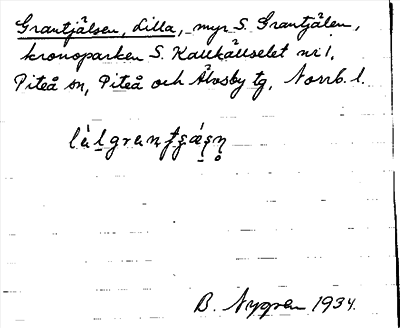 Grantjälsen, Lilla, myr S. Grantjälen,
kronoparken S. Kallkällselet nr 1,
Piteå sn, Piteå och Älvsby tg, Norrb. l.
B. Nygren 1934.